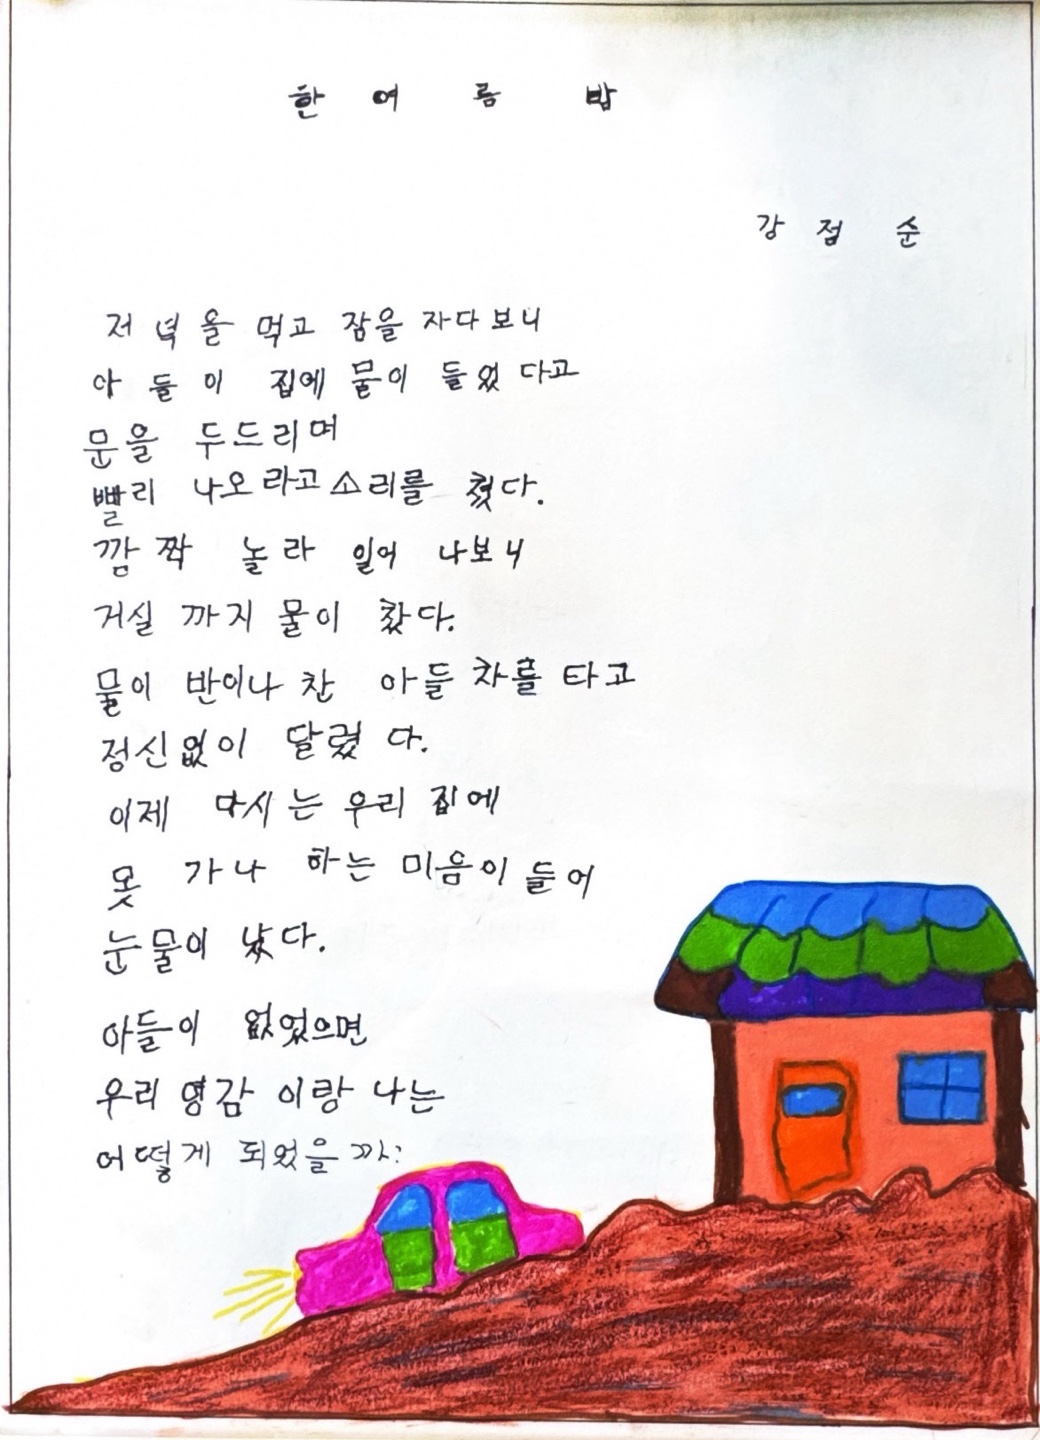 한 여 름 밥
강 점 순
저 녁 을 먹고 잠을 자다보니
아 들 이 집에 물이 들었 다고
문을 두드리며
빨리 나오라고 소리를 쳤다.
깜 짝 놀 라 일어 나보니
거실 까지 물이 찼다.
물이 반이나 찬 아들 차를 타고
정신없이 달렸 다.
이제 다시 는 우리 집에
못 가나 하는 미음이 들어
눈물이 났다.
아들이 없었으면
우리 영감 이랑 나는
어떻게 되었을까?